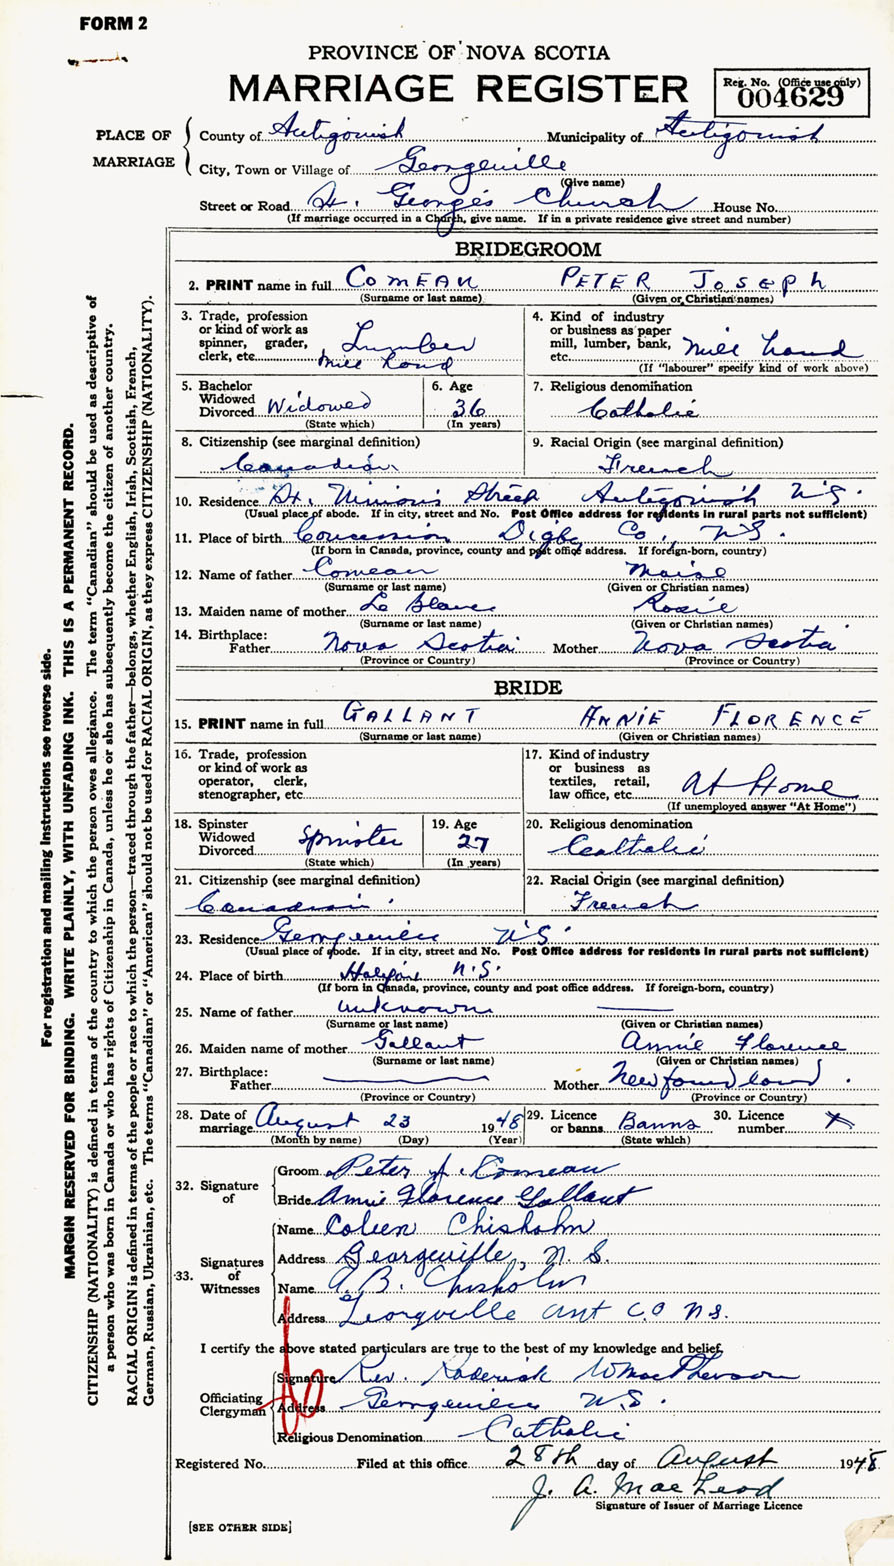 FORM 2
PROVINCE OF NOVA SCOTIA
MARRIAGE REGISTER
Reg. No. (Office use only)
004629
PLACE OF MARRIAGE
County of Antigonish Municipality of Antigonish
City, Town or Village of Georgeville
(Give name)
Street or Road St. George's Church House No.
(If marriage occurred in a Church, give name. If in a private residence give street and number)
BRIDEGROOM
2. PRINT name in full COMEAU PETER JOSEPH
(Surname or last name) (Given or Christian names)
3. Trade, profession or kind of work as spinner, grader, clerk, etc. Lumber mill hand
4. Kind of industry or business as paper mill, lumber, bank, etc. mill hand
(If "labourer" specify kind of work above)
5. Bachelor Widowed Divorced Widowed
(State which)
6. Age 36
(In years)
7. Religious denomination
Catholic
8. Citizenship (see marginal definition)
Canadian
9. Racial Origin (see marginal definition)
French
10. Residence St. Ninian's Street Antigonish N.S.
(Usual place of abode. If in city, street and No. Post Office address for residents in rural parts not sufficient)
11. Place of birth Concession Digby Co., N.S.
(If born in Canada, province, county and post office address. If foreign-born, country)
12. Name of father Comeau
(Surname or last name) (Given or Christian names)
13. Maiden name of mother Le Blanc Rosie
(Surname or last name) (Given or Christian names)
14. Birthplace: Father Nova Scotia Mother Nova Scotia
(Province or Country) (Province or Country)
BRIDE
15. PRINT name in full GALLANT ANNIE FLORENCE
(Surname or last name) (Given or Christian names)
16. Trade, profession or kind of work as operator, clerk, stenographer, etc.
17. Kind of industry or business as textiles, retail, law office, etc. At Home
(If unemployed answer "At Home")
18. Spinster Widowed Divorced Spinster
(State which)
19. Age 27
(In years)
20. Religious denomination
Catholic
21. Citizenship (see marginal definition)
Canadian
22. Racial Origin (see marginal definition)
French
23. Residence Georgeville N.S.
(Usual place of abode. If in city, street and No. Post Office address for residents in rural parts not sufficient)
24. Place of birth Halifax N.S.
(If born in Canada, province, county and post office address. If foreign-born, country)
25. Name of father unknown
(Surname or last name) (Given or Christian names)
26. Maiden name of mother Gallant Annie Florence
(Surname or last name) (Given or Christian names)
27. Birthplace: Father Mother Newfoundland.
(Province or Country) (Province or Country)
28. Date of marriage August 23 1948
(Month by name) (Day) (Year)
29. Licence or banns Banns
(State which)
30. Licence number X
32. Signature of
Groom Peter J. Comeau
Bride Annie Florence Gallant
33. Signatures of Witnesses
Name Coleen Chisholm
Address Georgeville, N.S.
Name A. B. Chisholm
Address Georgville Ant CO N.S.
I certify the above stated particulars are true to the best of my knowledge and belief.
Officiating Clergyman
Signature Rev. Roderick MacPherson
Address Georgeville N.S.
Religious Denomination Catholic
Registered No. Filed at this office 28th day of August 1948
J. A. MacLeod
Signature of Issuer of Marriage Licence
[SEE OTHER SIDE]
For registration and mailing instructions see reverse side.
MARGIN RESERVED FOR BINDING. WRITE PLAINLY, WITH UNFADING INK. THIS IS A PERMANENT RECORD.
CITIZENSHIP (NATIONALITY) is defined in terms of the country to which the person owes allegiance. The term "Canadian" should be used as descriptive of
a person who was born in Canada or who has rights of Citizenship in Canada, unless he or she has subsequently become the citizen of another country.
RACIAL ORIGIN is defined in terms of the people or race to which the person—traced through the father—belongs, whether English, Irish, Scottish, French,
German, Russian, Ukrainian, etc. The terms "Canadian" or "American" should not be used for RACIAL ORIGIN, as they express CITIZENSHIP (NATIONALITY).